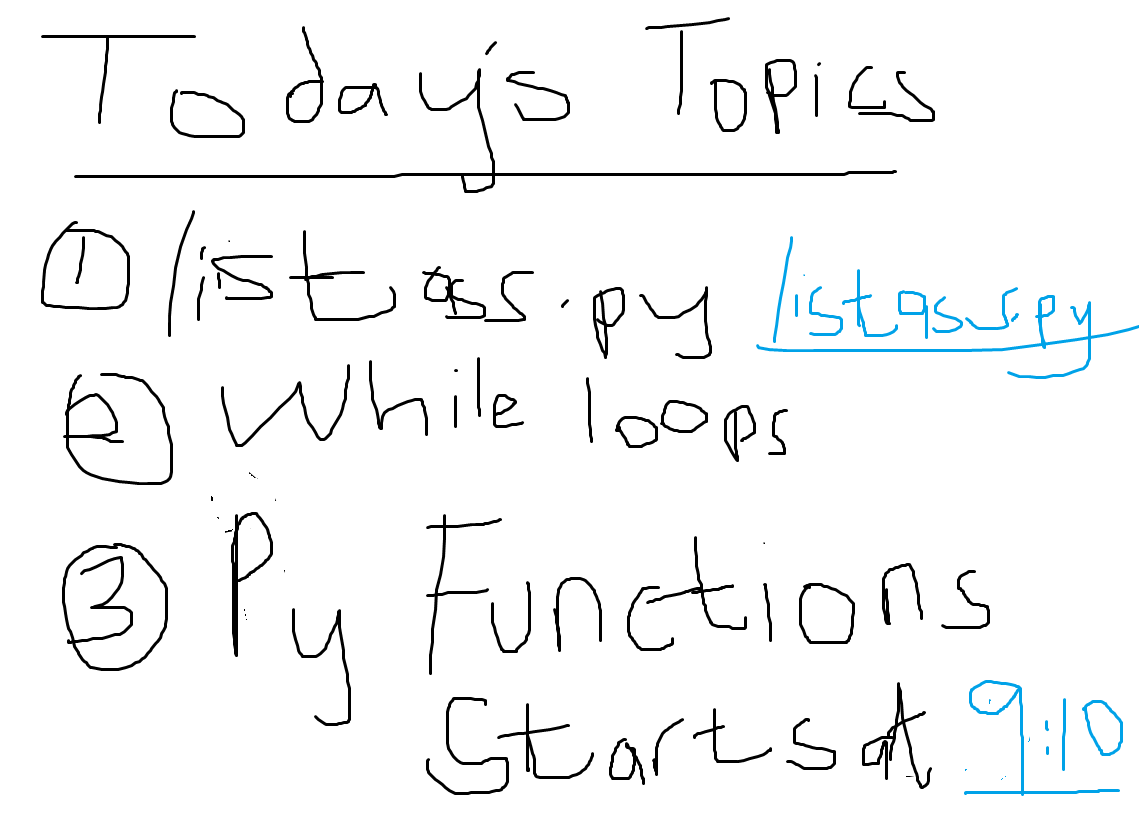 Today's Topics
① listass.py listass.py
② While loops
③ Py Functions
Starts at 9:10